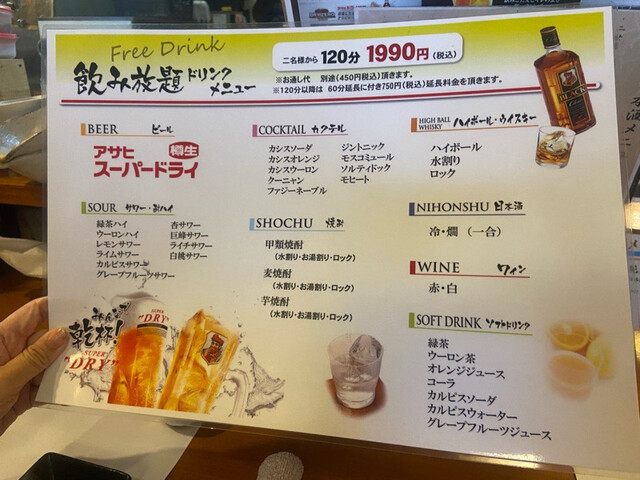 Free Drink
飲み放題ドリンクメニュー
二名様から 120分 1990円(税込)
※お通し代 別途(450円税込)頂きます。
※120分以降は 60分延長に付き750円(税込)延長料金を頂きます。
BEER ビール
アサヒ 樽生
スーパードライ
SOUR サワー・酎ハイ
緑茶ハイ
ウーロンハイ
レモンサワー
ライムサワー
カルピスサワー
グレープフルーツサワー
杏サワー
巨峰サワー
ライチサワー
白桃サワー
みんなで
乾杯!
SUPER
"DRY"
SUPER
"DRY"
COCKTAIL カクテル
カシスソーダ
カシスオレンジ
カシスウーロン
クーニャン
ファジーネーブル
ジントニック
モスコミュール
ソルティドック
モヒート
SHOCHU 焼酎
甲類焼酎
(水割り・お湯割り・ロック)
麦焼酎
(水割り・お湯割り・ロック)
芋焼酎
(水割り・お湯割り・ロック)
HIGH BALL
WHISKY ハイボール・ウイスキー
ハイボール
水割り
ロック
BLACK
NIHONSHU 日本酒
冷・燗 (一合)
WINE ワイン
赤・白
SOFT DRINK ソフトドリンク
緑茶
ウーロン茶
オレンジジュース
コーラ
カルピスソーダ
カルピスウォーター
グレープフルーツジュース